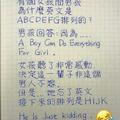 有個女孩問男孩
為什麼英文是
ABCDEFG排列的?
男孩回答:因為.....
A Boy Can Do Everything
For Girl.
女孩聽了非常感動
決定這一輩子非這個
男人不嫁。
但是...她忘了英文
接下來的排列是HIJK
He Is Just kidding..